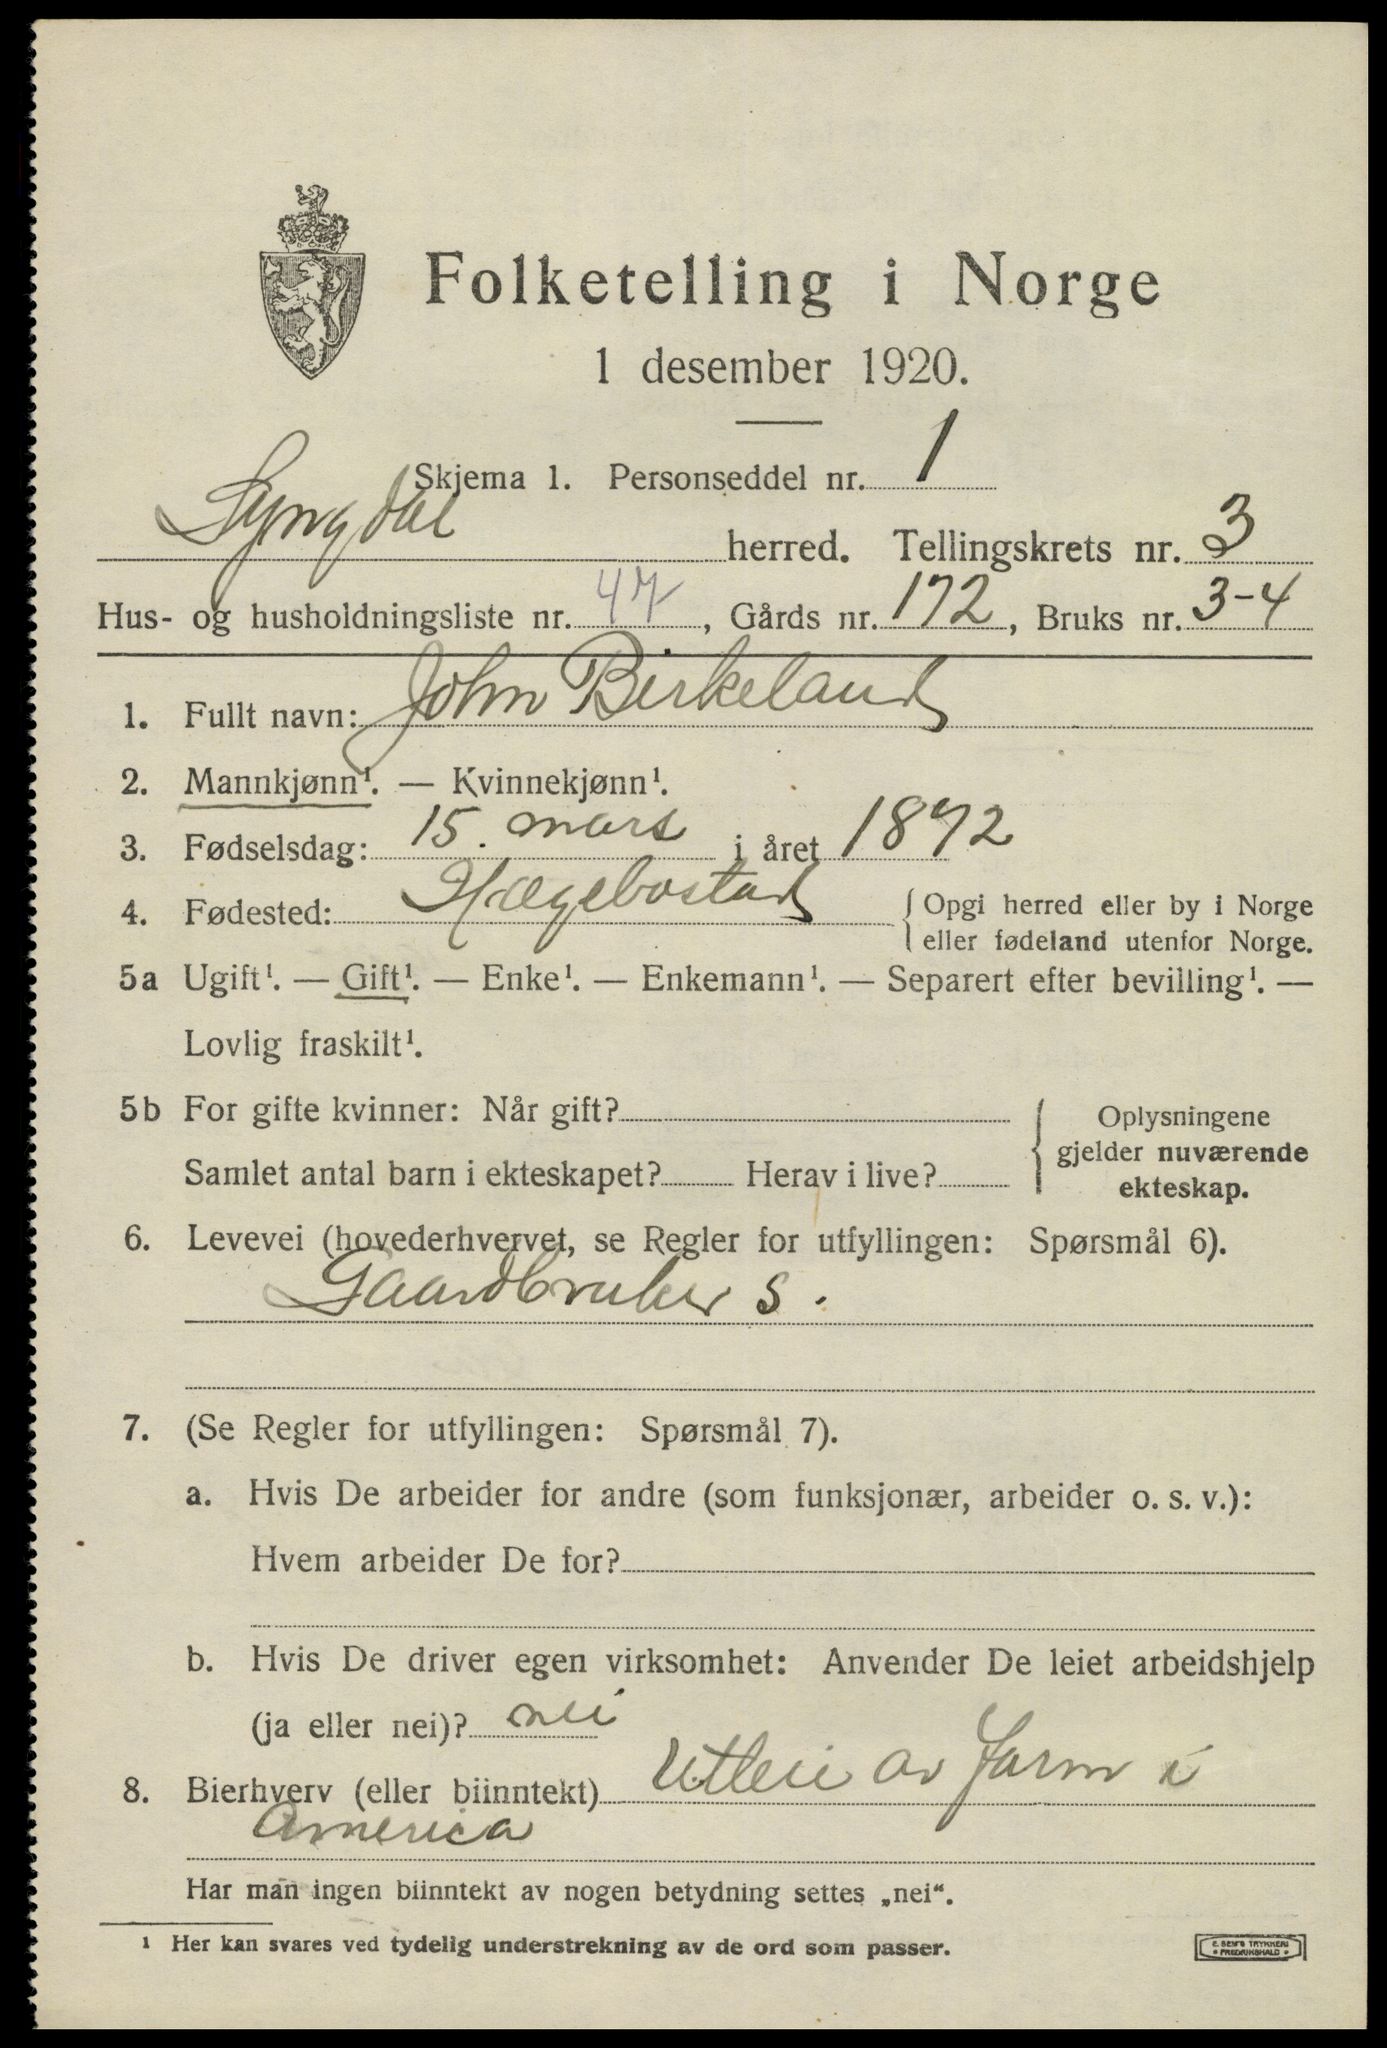 Folketelling i Norge
1 desember 1920.
Skjema 1. Personseddel nr. 1
Lyngdal herred. Tellingskrets nr. 3
Hus- og husholdningsliste nr. 47, Gårds nr. 172, Bruks nr. 3-4
1. Fullt navn: John Birkeland
2. Mannkjønn¹. — Kvinnekjønn¹.
3. Fødselsdag: 15. mars i året 1872
4. Fødested: Hægebostad { Opgi herred eller by i Norge
eller fødeland utenfor Norge.
5a Ugift¹. — Gift¹. — Enke¹. — Enkemann¹. — Separert efter bevilling¹. —
Lovlig fraskilt¹.
5b For gifte kvinner: Når gift? { Oplysningene
gjelder nuværende
Samlet antal barn i ekteskapet? Herav i live? ekteskap.
6. Levevei (hovederhvervet, se Regler for utfyllingen: Spørsmål 6).
Gaardbruker s.
7. (Se Regler for utfyllingen: Spørsmål 7).
a. Hvis De arbeider for andre (som funksjonær, arbeider o. s. v.):
Hvem arbeider De for?
b. Hvis De driver egen virksomhet: Anvender De leiet arbeidshjelp
(ja eller nei)? nei
8. Bierhverv (eller biinntekt) Utleie av farm i
America
Har man ingen biinntekt av nogen betydning settes „nei“.
¹ Her kan svares ved tydelig understrekning av de ord som passer.
E. SEM'S TRYKKERI
• FREDRIKSHALD •